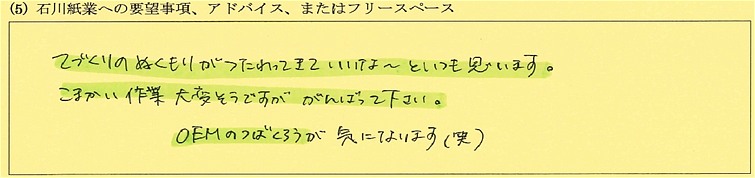 (5) 石川紙業への要望事項、アドバイス、またはフリースペース
てづくりのぬくもりがつたわってきていいな～といつも思います。
こまかい作業大変そうですががんばって下さい。
OEMのつばくろうが気になります(笑)